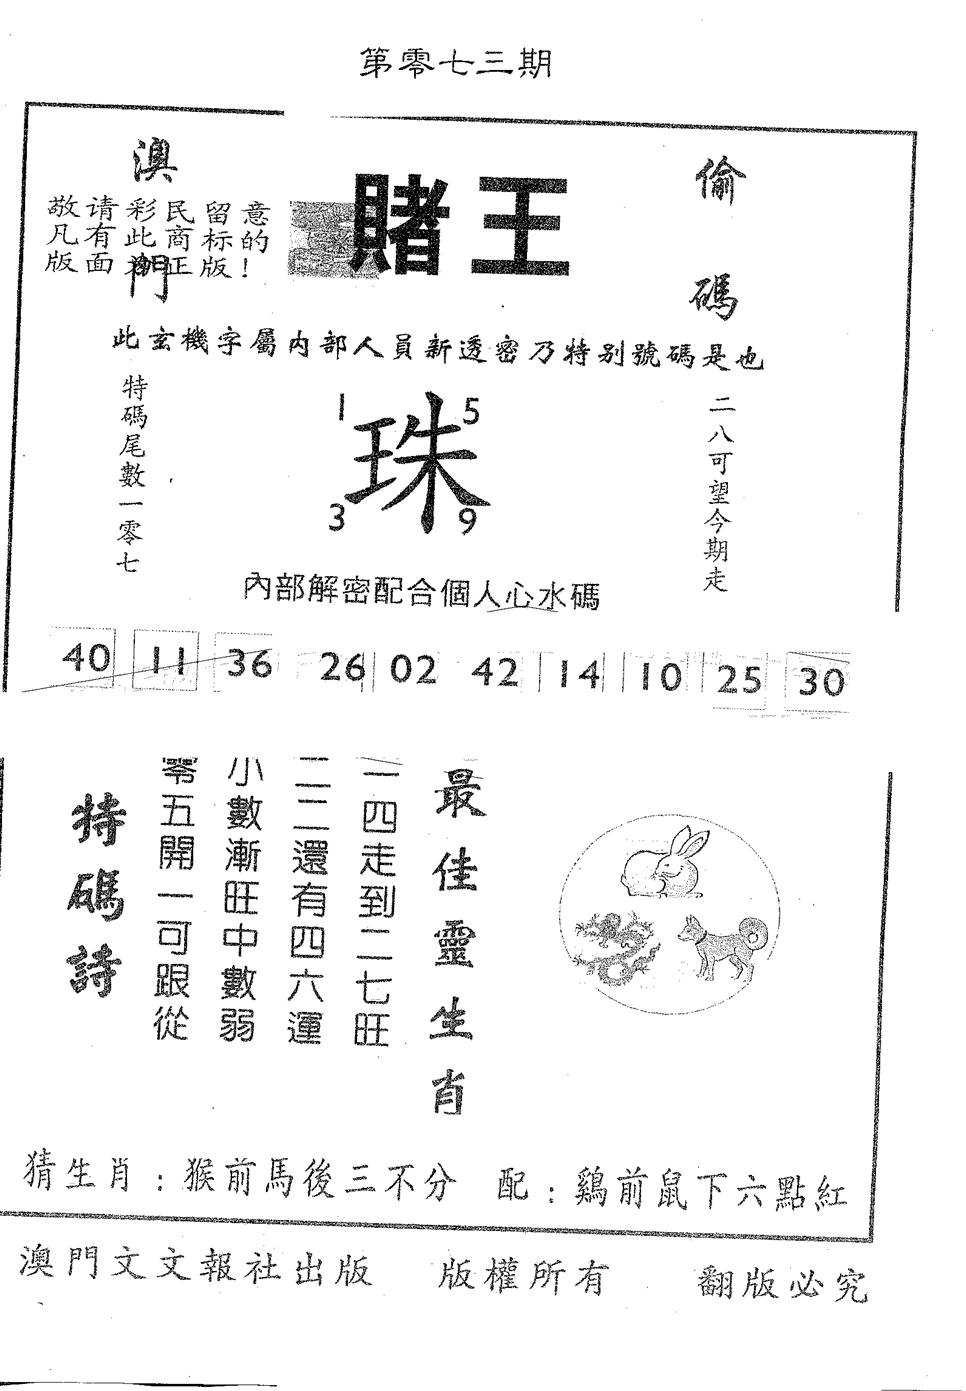 第零七三期
澳門
敬请彩民留意
凡有此商标的
版面为正版!
賭王
偷碼
此玄機字屬内部人員新透密乃特别號碼是也
特碼尾數一零七
1 5
珠
3 9
二八可望今期走
內部解密配合個人心水碼
40 11 36 26 02 42 14 10 25 30
最佳靈生肖
一四走到二七旺
二二還有四六運
小數漸旺中數弱
零五開一可跟從
特碼詩
猜生肖:猴前馬後三不分 配:鷄前鼠下六點紅
澳門文文報社出版 版權所有 翻版必究